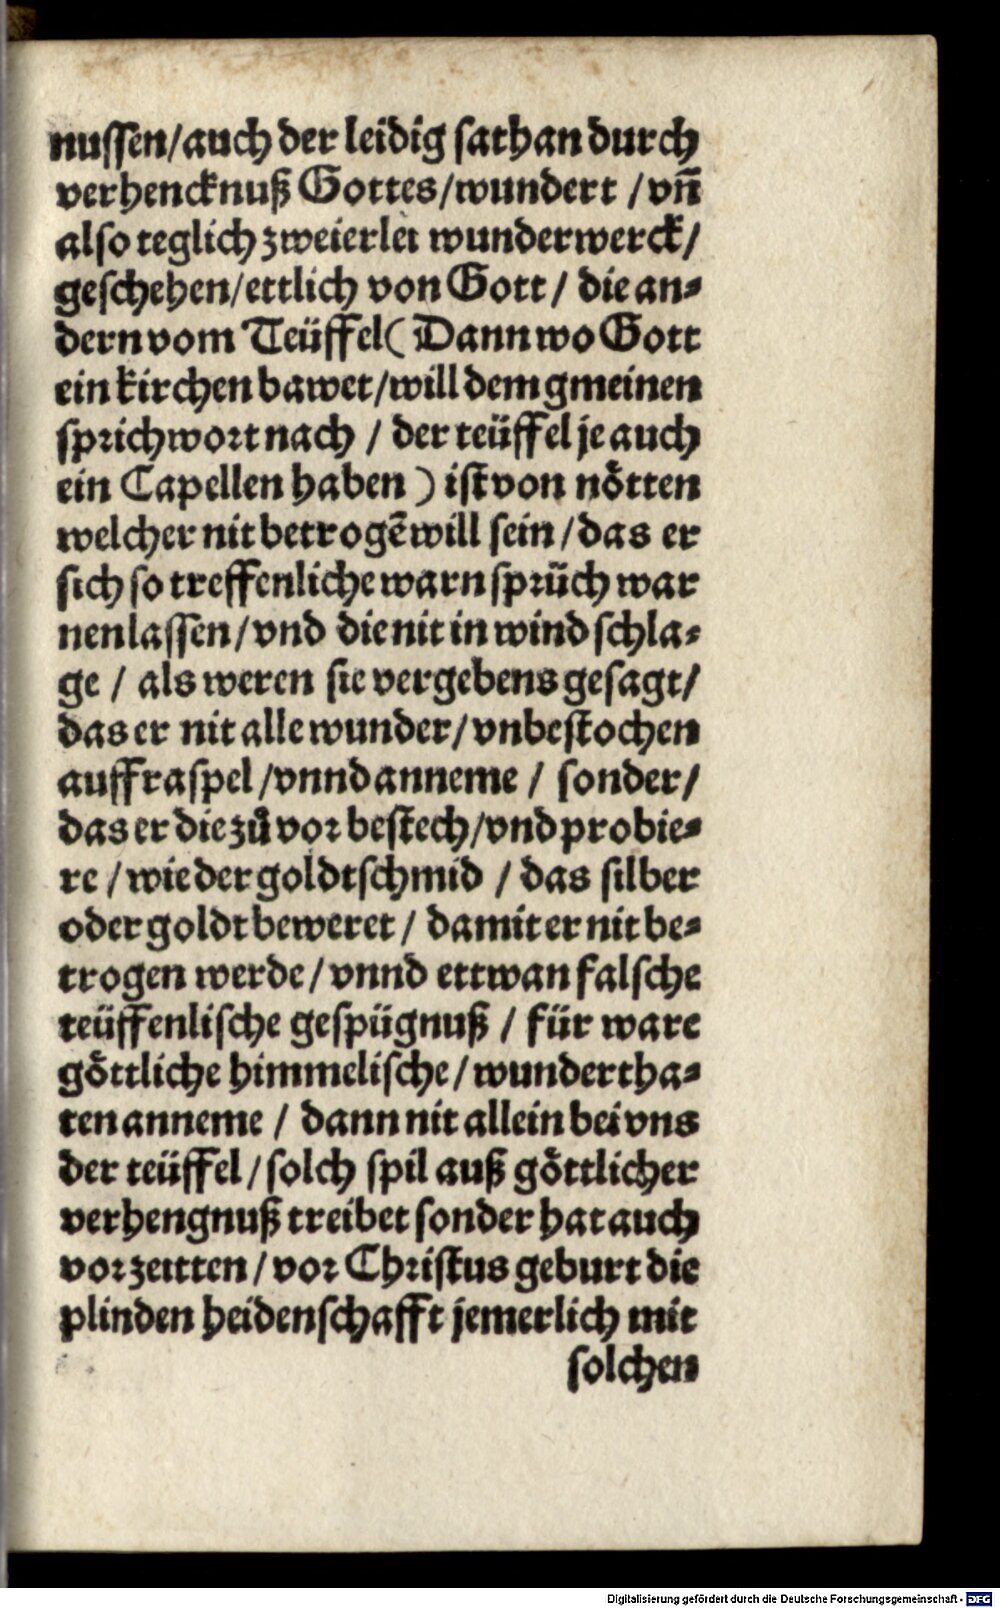 nussen/auch der leidig sathan durch
verhencknuß Gottes/wundert /vñ
also teglich zweierlei wunderwerck/
geschehen/ettlich von Gott/ die an-
dern vom Teüffel( Dann wo Gott
ein kirchen bawet/will dem gmeinen
sprichwort nach / der teüffel je auch
ein Capellen haben ) ist von nötten
welcher nit betrogē will sein/das er
sich so treffenliche warn sprüch war
nen lassen/vnd die nit in wind schla-
ge / als weren sie vergebens gesagt/
das er nit alle wunder/vnbestochen
auffraspel/vnnd anneme / sonder/
das er die zů vor bestech/vnd probie-
re /wie der goldtschmid / das silber
oder goldt beweret/ damit er nit be-
trogen werde/vnnd ettwan falsche
teüffenlische gespügnuß / für ware
göttliche himmelische/wundertha-
ten anneme / dann nit allein bei vns
der teüffel/solch spil auß göttlicher
verhengnuß treibet sonder hat auch
vor zeitten/vor Christus geburt die
plinden heidenschafft jemerlich mit
solchen
Digitalisierung gefördert durch die Deutsche Forschungsgemeinschaft - DFG